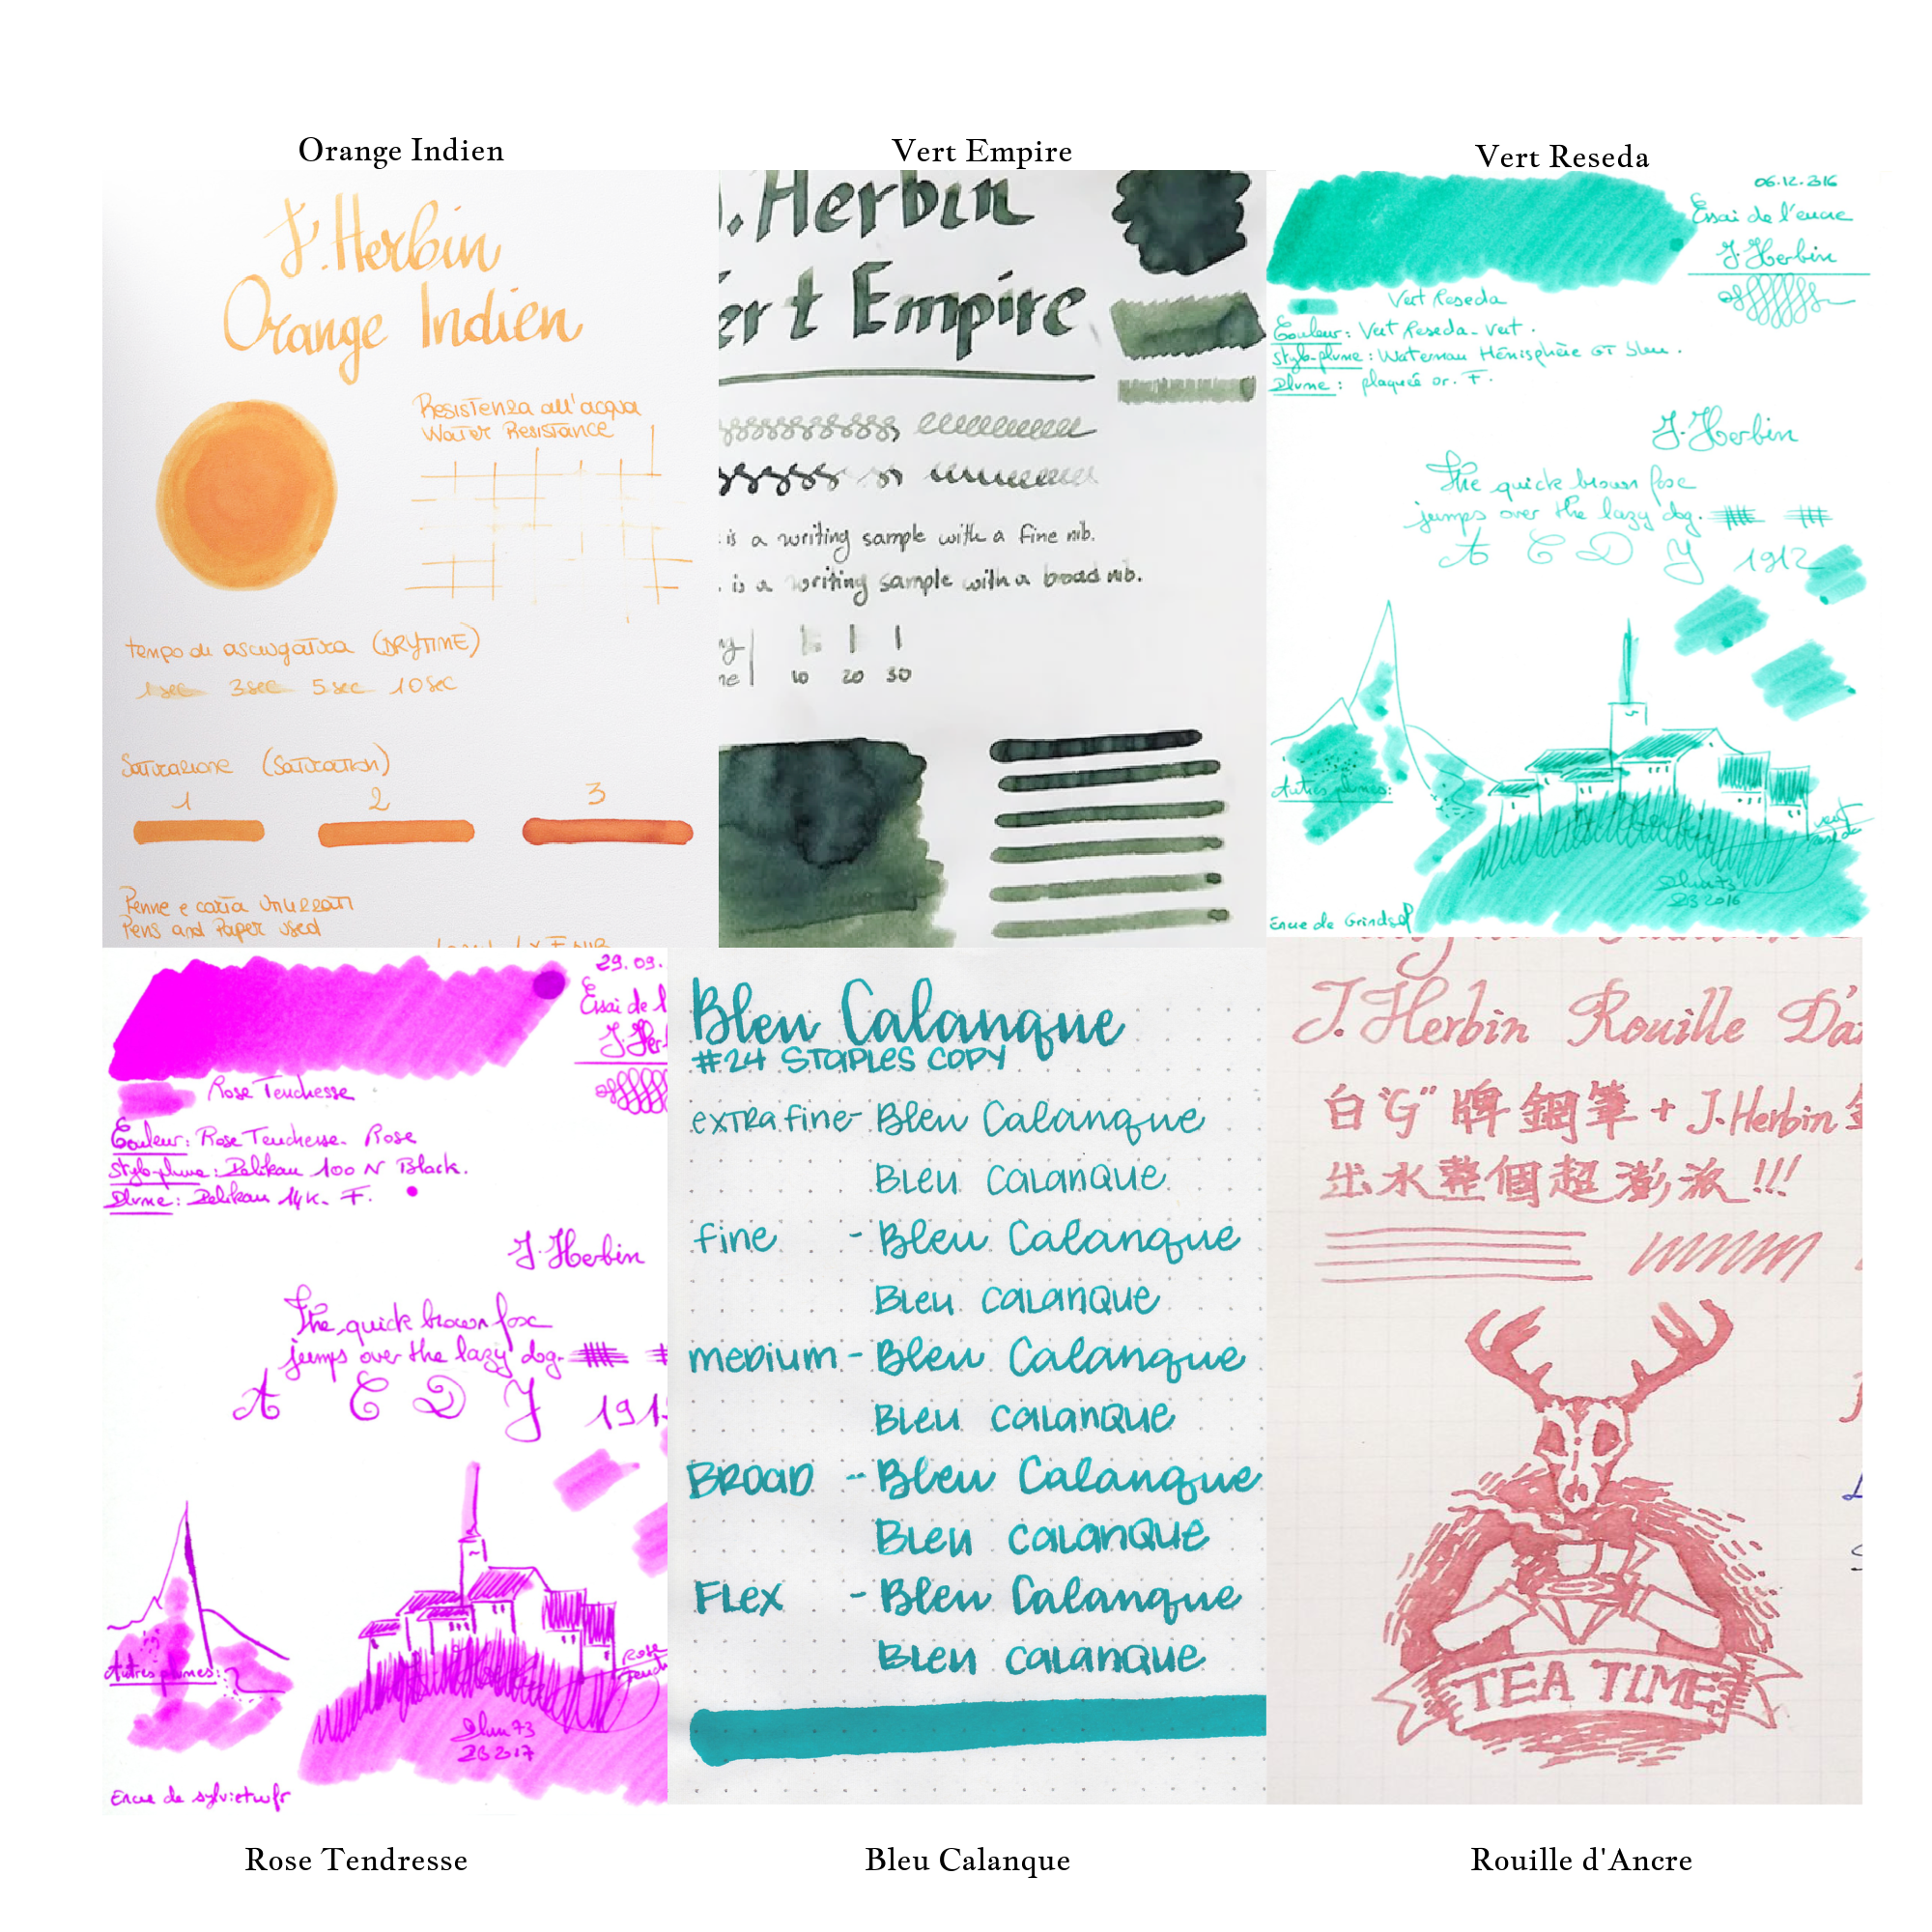 Orange Indien
J. Herbin
Orange Indien
Resistenza all'acqua
Water Resistance
tempo di asciugatura (DRYTIME)
1sec 3sec 5sec 10sec
Saturazione (SATURATION)
1 2 3
Penne e carta utilizzati
Pens and Paper used
Vert Empire
J.Herbin
ert Empire
is a writing sample with a fine nib.
is a writing sample with a broad nib.
10 20 30
Vert Reseda
06.12.316
Essai de l'encre
J. Herbin
Vert Reseda
Couleur: Vert Reseda - Vert.
Stylo-plume: Waterman Hémisphère GT bleu.
Plume: plaquée or. F.
J. Herbin
The quick brown fox
jumps over the lazy dog.
A C D J 1912
Autres plumes:
Vert
Reseda
2016
Encre de
Rose Tendresse
29.09.
Essai de l
J. Her
Rose Tendresse
Couleur: Rose Tendresse - Rose
Stylo-plume: Pelikan 100 N Black.
Plume: Pelikan 14K. F.
J. Herbin
The quick brown fox
jumps over the lazy dog.
A C D J 191
Autres plumes:
Rose
2017
Encre de
Bleu Calanque
Bleu Calanque
#24 STAPLES COPY
extra fine - Bleu Calanque
Bleu Calanque
fine - Bleu Calanque
Bleu Calanque
medium - Bleu Calanque
Bleu Calanque
Broad - Bleu Calanque
Bleu Calanque
Flex - Bleu Calanque
Bleu Calanque
Rouille d'Ancre
J. Herbin Rouille D'a
白"G"牌鋼筆 + J.Herbin
出水整個超澎派!!!
TEA TIME